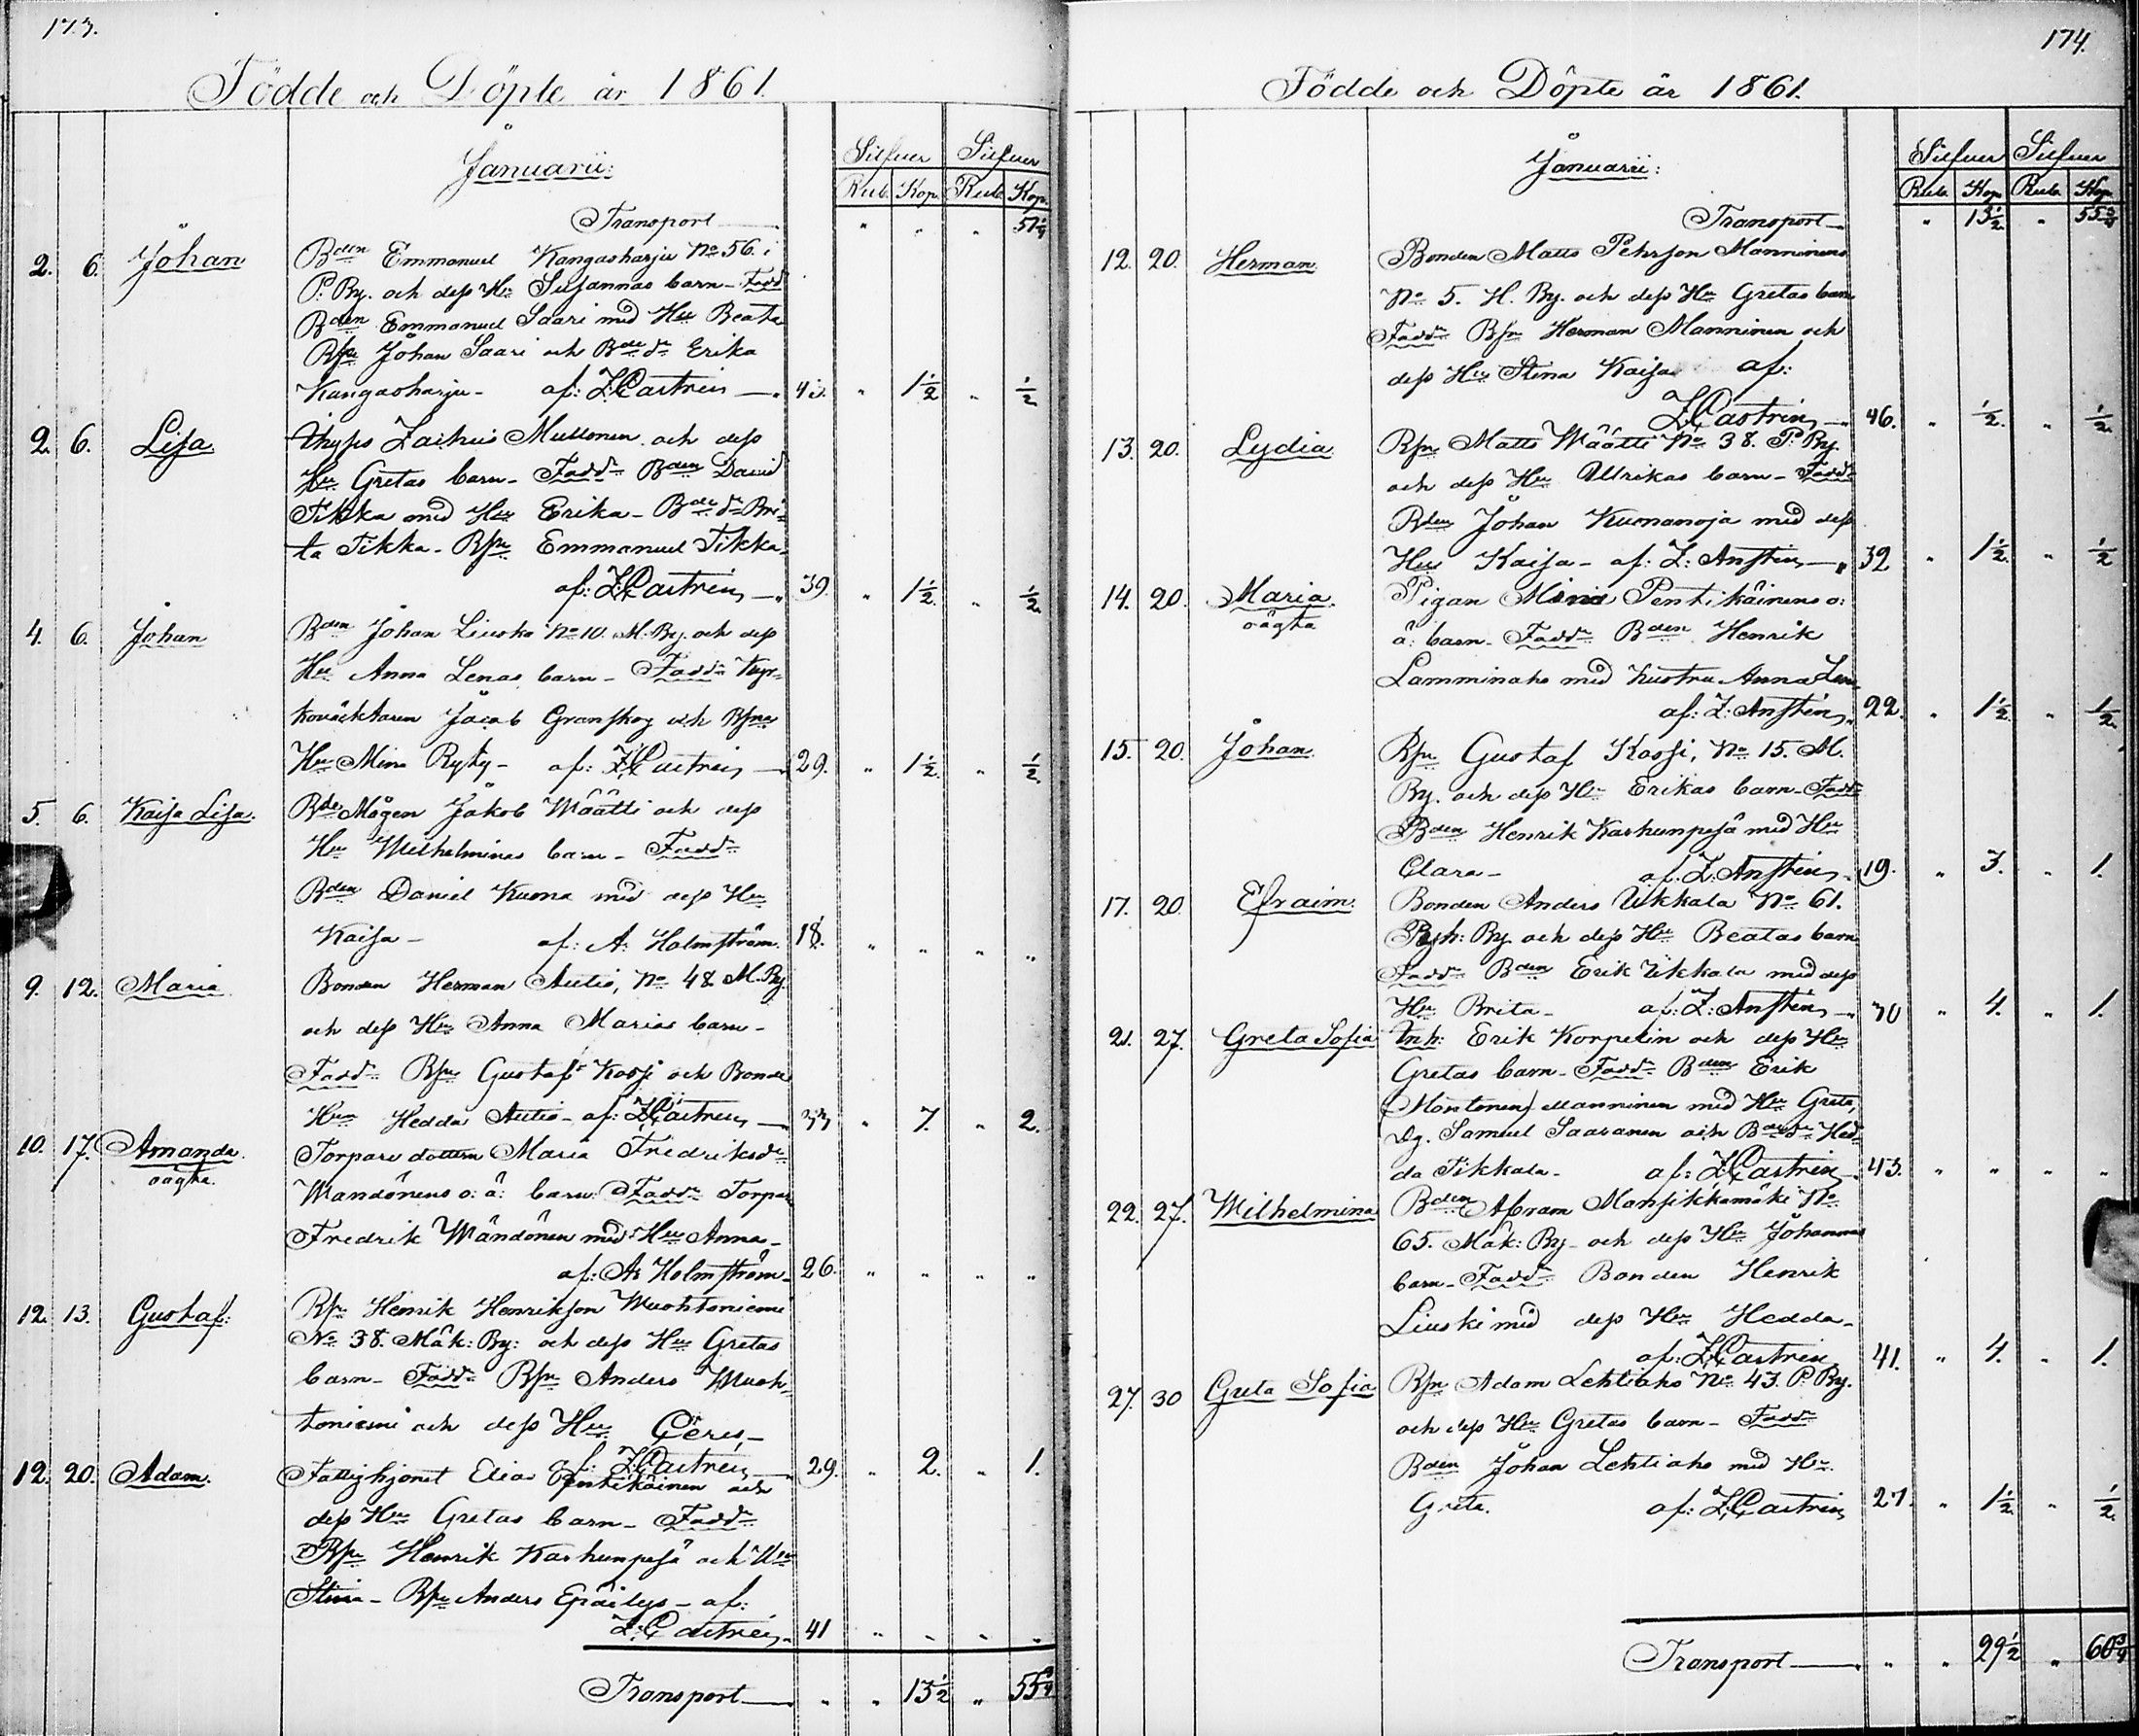 173.
Födde och Döpte år 1861.
Januarii:
Silfver Silfver
Rub. Kop. Rub. Kop.
Transport — " " " 51 1/4
2. 6. Johan Bden Emmanuel Kangasharju No 56. i
P. By. och dess Hu Susannas barn – Fadd
Bden Emmanuel Saari med Hu Beata
Bsn Johan Saari och Bde dr Erika
Kangasharju – af: Z. Castrén — 43. " 1 1/2 " 1/2
2. 6. Lisa Zachris Mullonen och dess
Hu Gretas barn – Faddr Bden David
Tikka med Hu Erika – Bde dr Bri-
ta Tikka – Bsn Emmanuel Tikka
af: Z. Castrén — 39. " 1 1/2. " 1/2.
4. 6. Johan Bden Johan Liuska No 10. M. By. och dess
Hu Anna Lenas barn – Faddr
Jacob Granskog och Bsns
Hu Mina Ryky – af: Z. Castrén — 29. " 1 1/2. " 1/2.
5. 6. Kaisa Lisa. Bde Mågen Jakob Wäätti och dess
Hu Wilhelminas barn – Faddr
Bden Daniel Kuona med dess Hu
Kaisa – af: A: Holmström. 18. " " " "
9. 12. Maria Bonden Herman Autio, No 48 M. By
och dess Hu Anna Marias barn –
Faddr Bsn Gustaf Kossi och Bonde
Hu Hedda Autio – af: Z. Castrén — 33 " 7. " 2.
10. 17. Amanda Torpare dottern Maria Fredriksdr
oägta. Wändönens o: ä: barn: Faddr Torpar
Fredrik Wändönen med Hu Anna –
af: A: Holmström – 26. " " " "
12. 13. Gustaf: Bsn Henrik Henrikson Muohtoniemi
No 38. Mäk: By: och dess Hu Gretas
barn – Faddr Bsn Anders Muoh-
toniemi och dess Hu Ceres –
af: Z. Castrén — 29. " 2. " 1.
12. 20. Adam. Fattighjonet Elias Pentikäinen och
dess Hu Gretas barn – Faddr
Bsn Henrik Karhunpesä och Hu
Stina – Bsn Anders Epäilys – af:
Z. Castrén – 41 " " " "
Transport — " " 13 1/2 " 55 3/4
174.
Födde och Döpte år 1861.
Januarii:
Silfver Silfver
Rub. Kop. Rub. Kop.
Transport — " 13 1/2. " 55 3/4
12. 20. Herman Bonden Matts Pehrson Manninens
No 5. H. By. och dess Hu Gretas barn
Faddr Bsn Herman Manninen och
dess Hu Stina Kaisa af:
Z. Castrén — 46. " 1/2. " 1/2.
13. 20. Lydia Bsn Matts Wäätti No 38. P. By.
och dess Hu Ulrikas barn – Faddr
Bden Johan Kuonanoja med dess
Hu Kaisa – af: Z: Anstén — 32 " 1 1/2. " 1/2
14. 20. Maria Pigan Mina Pentikäinens o:
oägta ä: barn – Faddr Bden Henrik
Lamminaho med hustru Anna Lena
af: Z: Anstén 22. " 1 1/2. " 1/2.
15. 20. Johan Bsn Gustaf Kossi, No 15. M.
By. och dess Hu Erikas barn – Faddr
Bden Henrik Karhunpesä med Hu
Clara – af. Z: Anstén – 19. " 3. " 1.
17. 20. Efraim. Bonden Anders Ukkola No 61.
Pyh: By och dess Hu Beatas barn
Faddr Bden Erik Ukkola med dess
Hu Brita – af: Z: Anstén – 30 " 4. " 1.
21. 27. Greta Sofia Inh: Erik Korpelin och dess Hu
Gretas barn – Faddr Bden Erik
(Montonen) Manninen med Hu Greta,
Dg. Samuel Saaranen och Bde dr Hed-
da Tikkala – af: Z. Castrén – 43. " " " "
22. 27. Wilhelmina Bden Abram Mansikkamäki No
65. Mäk: By – och dess Hu Johannas
barn – Faddr Bonden Henrik
Liuski med dess Hu Hedda –
af: Z. Castrén 41. " 4. " 1.
27. 30 Greta Sofia Bsn Adam Lehtiaho No 43. P. By.
och dess Hu Gretas barn – Faddr
Bden Johan Lehtiaho med Hu
Greta. af: Z. Castrén 27. " 1 1/2. " 1/2.
Transport — " " 29 1/2 " 60 3/4